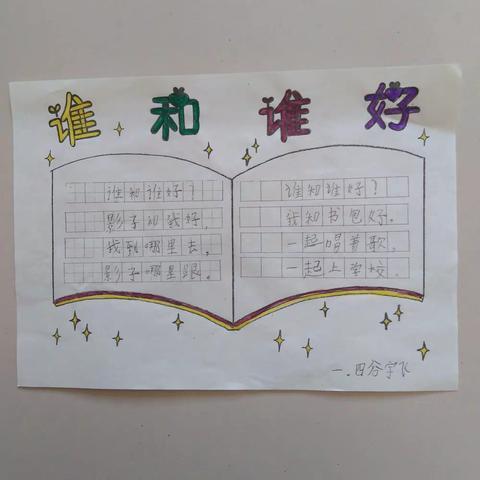 谁和谁好
谁和谁好？
影子和我好，
我到哪里去，
影子哪里跟。
谁和谁好？
我和书包好。
一起唱着歌，
一起上学校。
一.四谷宇飞